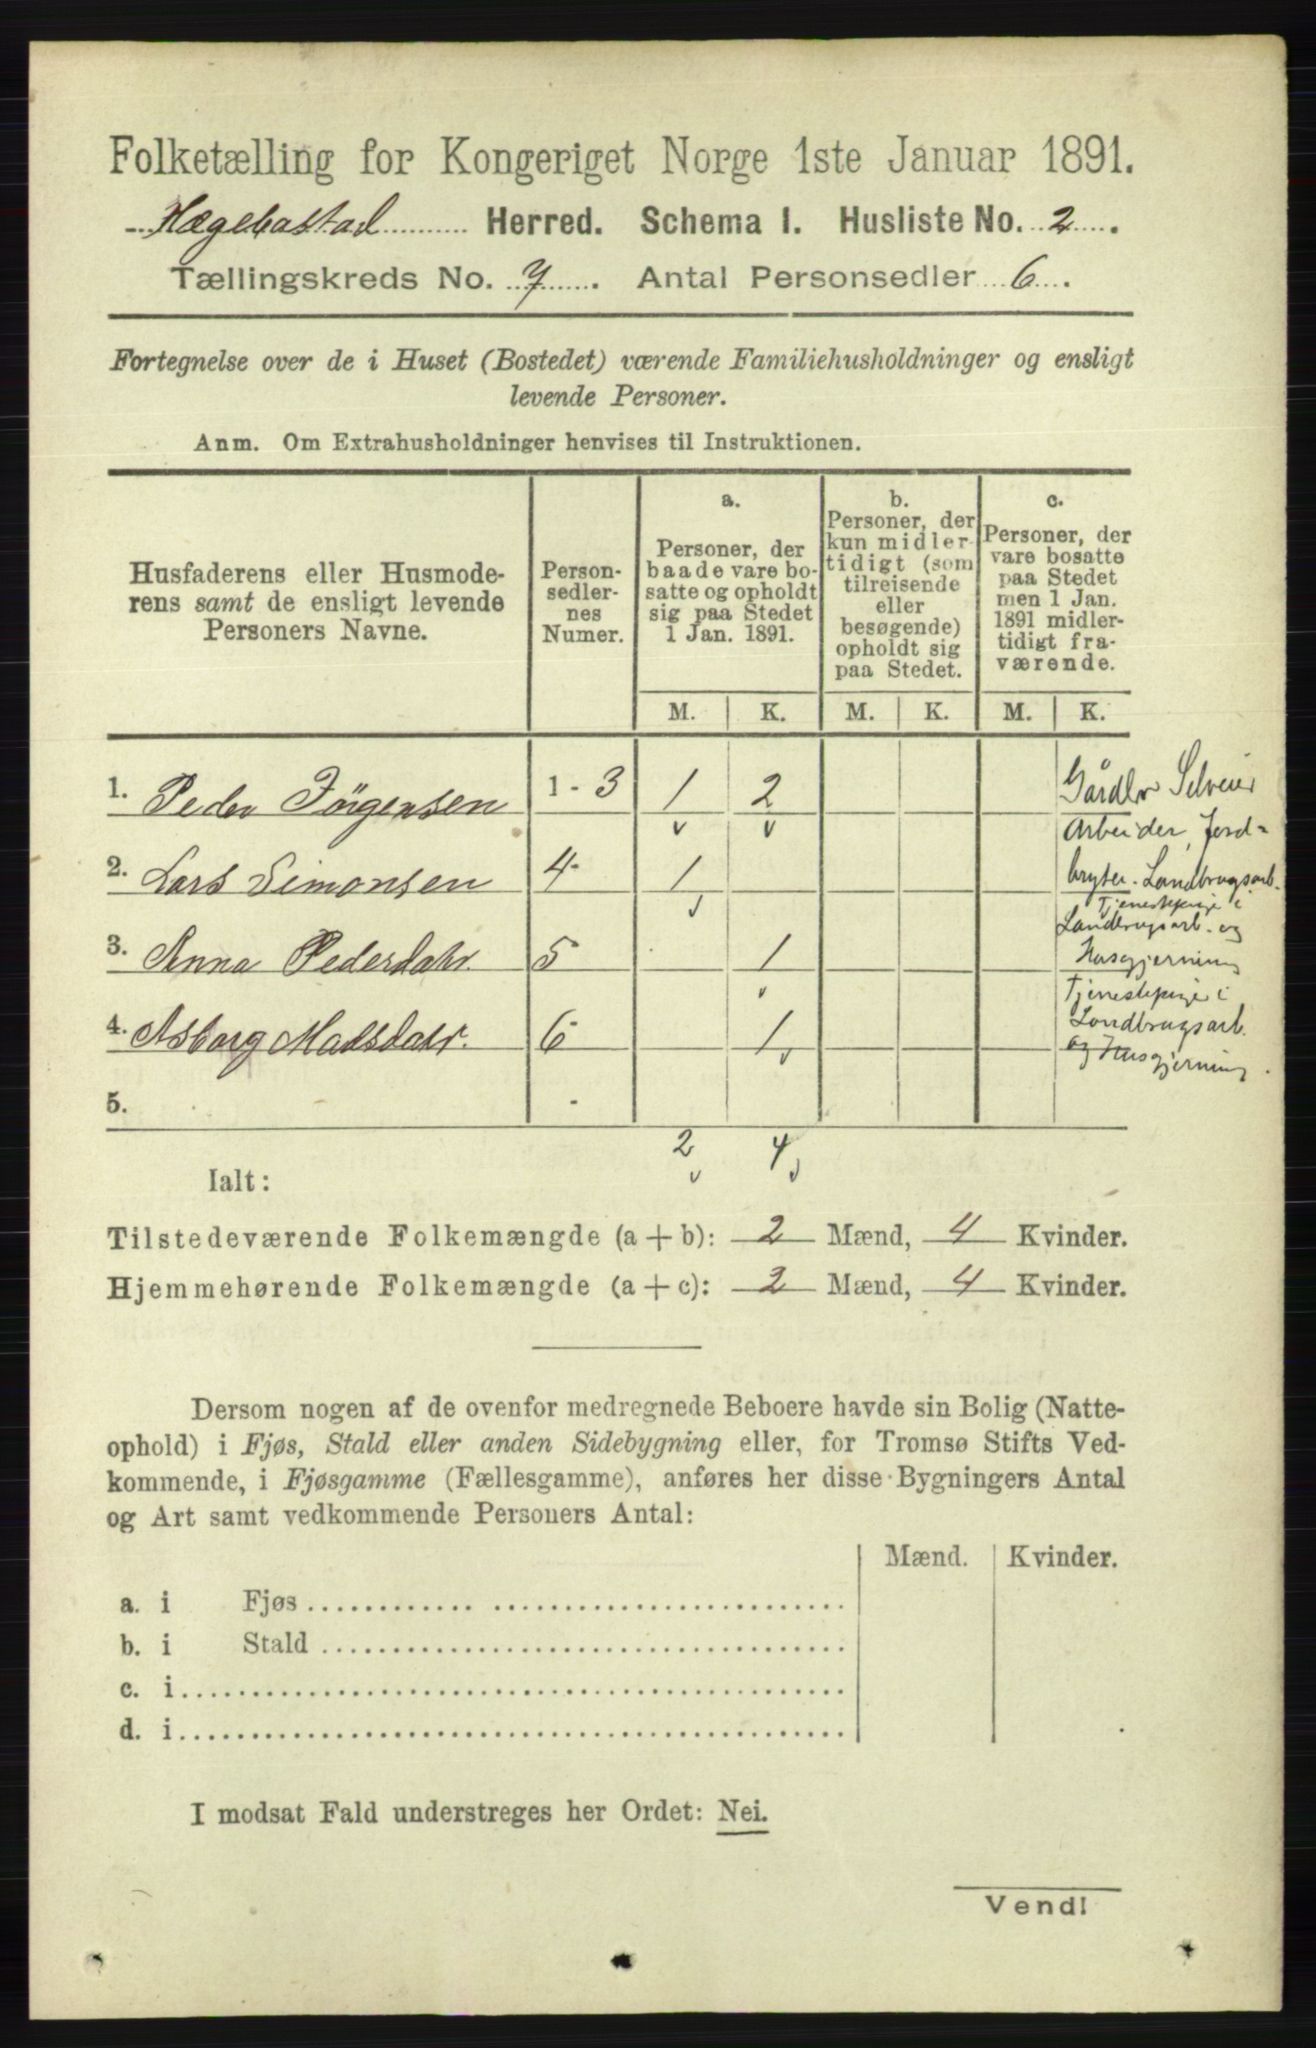 Folketælling for Kongeriget Norge 1ste Januar 1891.
Hægebostad Herred. Schema I. Husliste No. 2.
Tællingskreds No. 7. Antal Personsedler 6.
Fortegnelse over de i Huset (Bostedet) værende Familiehusholdninger og ensligt
levende Personer.
Anm. Om Extrahusholdninger henvises til Instruktionen.
Husfaderens eller Husmode-
rens samt de ensligt levende
Personers Navne.
Person-
sedler-
nes
Numer.
a.
Personer, der
baade vare bo-
satte og opholdt
sig paa Stedet
1 Jan. 1891.
b.
Personer, der
kun midler-
tidigt (som
tilreisende
eller
besøgende)
opholdt sig
paa Stedet.
c.
Personer, der
vare bosatte
paa Stedet
men 1 Jan.
1891 midler-
tidigt fra-
værende.
M. K. M. K. M. K.
1. Peder Jörgensen 1 - 3 1 2 Gårdbr Selveier
Arbeider, Jord-
2. Lars Simonsen 4 1 bryter. Landbrugsarb.
Tjenestepige i
Landbrugsarb. og
3. Anna Pedersdatr. 5 1 Husgjerning
Tjenestepige i
4. Asborg Madsdatr. 6 1 Landbrugsarb.
og Husgjerning.
5. -
2 4
Ialt:
Tilstedeværende Folkemængde (a + b): 2 Mænd, 4 Kvinder.
Hjemmehørende Folkemængde (a + c): 2 Mænd, 4 Kvinder.
Dersom nogen af de ovenfor medregnede Beboere havde sin Bolig (Natte-
ophold) i Fjøs, Stald eller anden Sidebygning eller, for Tromsø Stifts Ved-
kommende, i Fjøsgamme (Fællesgamme), anføres her disse Bygningers Antal
og Art samt vedkommende Personers Antal:
Mænd. Kvinder.
a. i Fjøs
b. i Stald
c. i
d. i
I modsat Fald understreges her Ordet: Nei.
Vend!